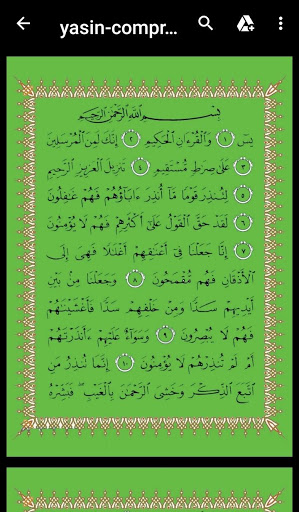 yasin-compr...
بِسْمِ اللَّهِ الرَّحْمَٰنِ الرَّحِيمِ
يسٓ ١ وَالْقُرْءَانِ الْحَكِيمِ ٢ إِنَّكَ لَمِنَ الْمُرْسَلِينَ
٣ عَلَىٰ صِرَاطٍ مُّسْتَقِيمٍ ٤ تَنزِيلَ الْعَزِيزِ الرَّحِيمِ
٥ لِتُنذِرَ قَوْمًا مَّا أُنذِرَ ءَابَاؤُهُمْ فَهُمْ غَافِلُونَ
٦ لَقَدْ حَقَّ الْقَوْلُ عَلَىٰ أَكْثَرِهِمْ فَهُمْ لَا يُؤْمِنُونَ
٧ إِنَّا جَعَلْنَا فِي أَعْنَاقِهِمْ أَغْلَالًا فَهِيَ إِلَى
الْأَذْقَانِ فَهُم مُّقْمَحُونَ ٨ وَجَعَلْنَا مِن بَيْنِ
أَيْدِيهِمْ سَدًّا وَمِنْ خَلْفِهِمْ سَدًّا فَأَغْشَيْنَاهُمْ
فَهُمْ لَا يُبْصِرُونَ ٩ وَسَوَاءٌ عَلَيْهِمْ ءَأَنذَرْتَهُمْ
أَمْ لَمْ تُنذِرْهُمْ لَا يُؤْمِنُونَ ١٠ إِنَّمَا تُنذِرُ مَنِ
اتَّبَعَ الذِّكْرَ وَخَشِيَ الرَّحْمَٰنَ بِالْغَيْبِ ۖ فَبَشِّرْهُ